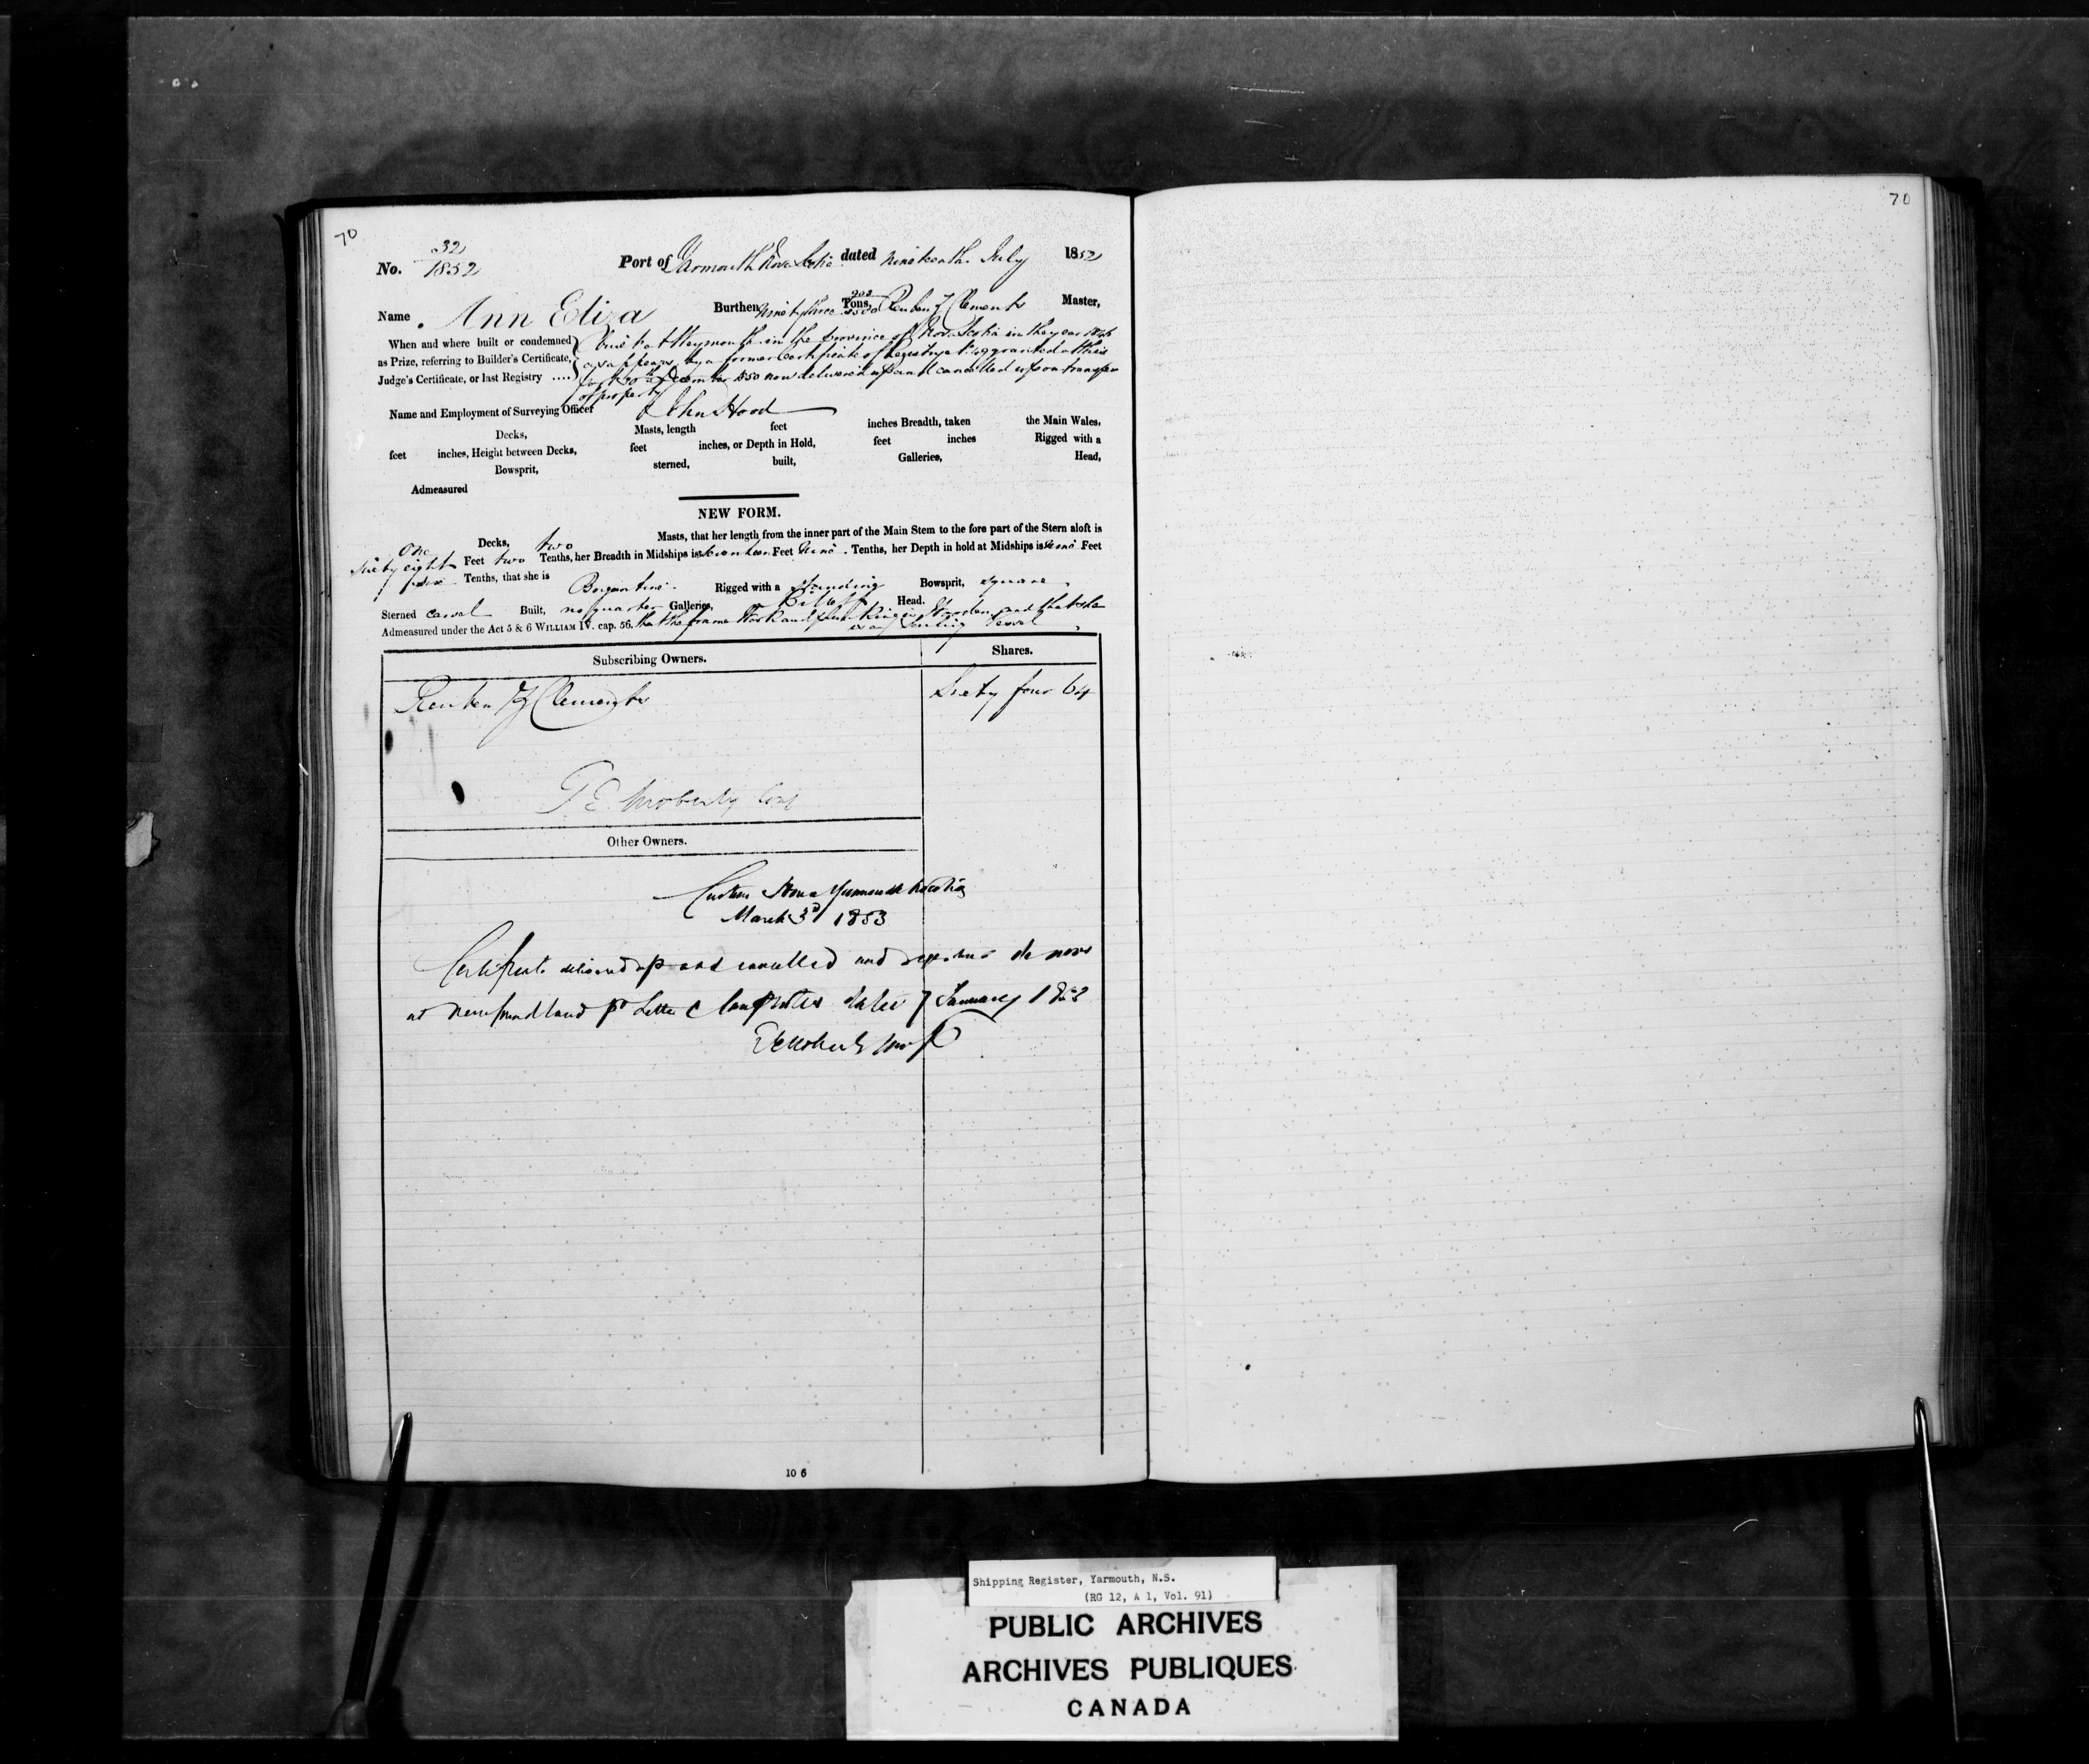 70
70
No. 32 1852
Port of Yarmouth Nova Scotia dated nineteenth July 1852
Name Ann Eliza Burthen ninety three Tons, Reuben Clements Master,
When and where built or condemned
as Prize, referring to Builder's Certificate,
Judge's Certificate, or last Registry ....
built at Weymouth in the province of Nova Scotia in the year
as appears by a former Certificate of Registry granted at this
port December 1850 now delivered up and cancelled upon transfer
of property
Name and Employment of Surveying Officer John Hood
Decks, Masts, length feet inches Breadth, taken the Main Wales,
feet inches, Height between Decks, feet inches, or Depth in Hold, feet inches Rigged with a
Bowsprit, sterned, built, Galleries, Head,
Admeasured
NEW FORM.
one Decks, two Masts, that her length from the inner part of the Main Stem to the fore part of the Stern aloft is
sixty eight Feet two Tenths, her Breadth in Midships is Feet nine Tenths, her Depth in hold at Midships is Feet
Tenths, that she is Brigantine Rigged with a standing Bowsprit, square
Sterned carvel Built, no quarter Galleries, Billet Head.
Admeasured under the Act 5 & 6 WILLIAM IV. cap. 56. that the frame work and planking is Wooden and that she
is a Sailing Vessel
Subscribing Owners. Shares.
Reuben Clements Sixty four 64
T E Moberly Coll
Other Owners.
Custom House Yarmouth N Scotia
March 3d 1853
Certificate delivered up and cancelled and registered de novo
at Newfoundland pr Letter dated 7 January 1853
10 6
Shipping Register, Yarmouth, N.S.
(RG 12, A 1, Vol. 91)
PUBLIC ARCHIVES
ARCHIVES PUBLIQUES
CANADA